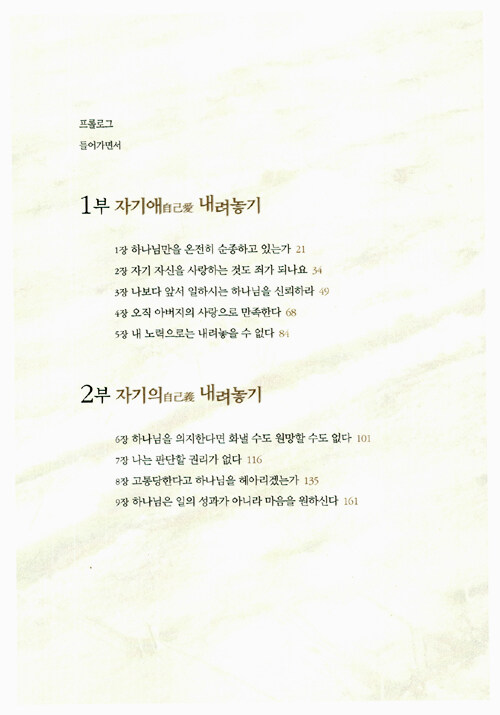 프롤로그
들어가면서
1부 자기애自己愛 내려놓기
1장 하나님만을 온전히 순종하고 있는가 21
2장 자기 자신을 사랑하는 것도 죄가 되나요 34
3장 나보다 앞서 일하시는 하나님을 신뢰하라 49
4장 오직 아버지의 사랑으로 만족한다 68
5장 내 노력으로는 내려놓을 수 없다 84
2부 자기의自己義 내려놓기
6장 하나님을 의지한다면 화낼 수도 원망할 수도 없다 101
7장 나는 판단할 권리가 없다 116
8장 고통당한다고 하나님을 헤아리겠는가 135
9장 하나님은 일의 성과가 아니라 마음을 원하신다 161